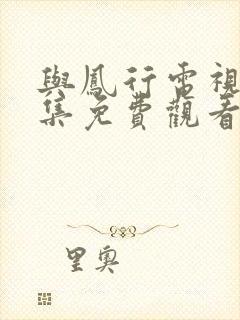 與鳳行電視
集免費觀看
里奧